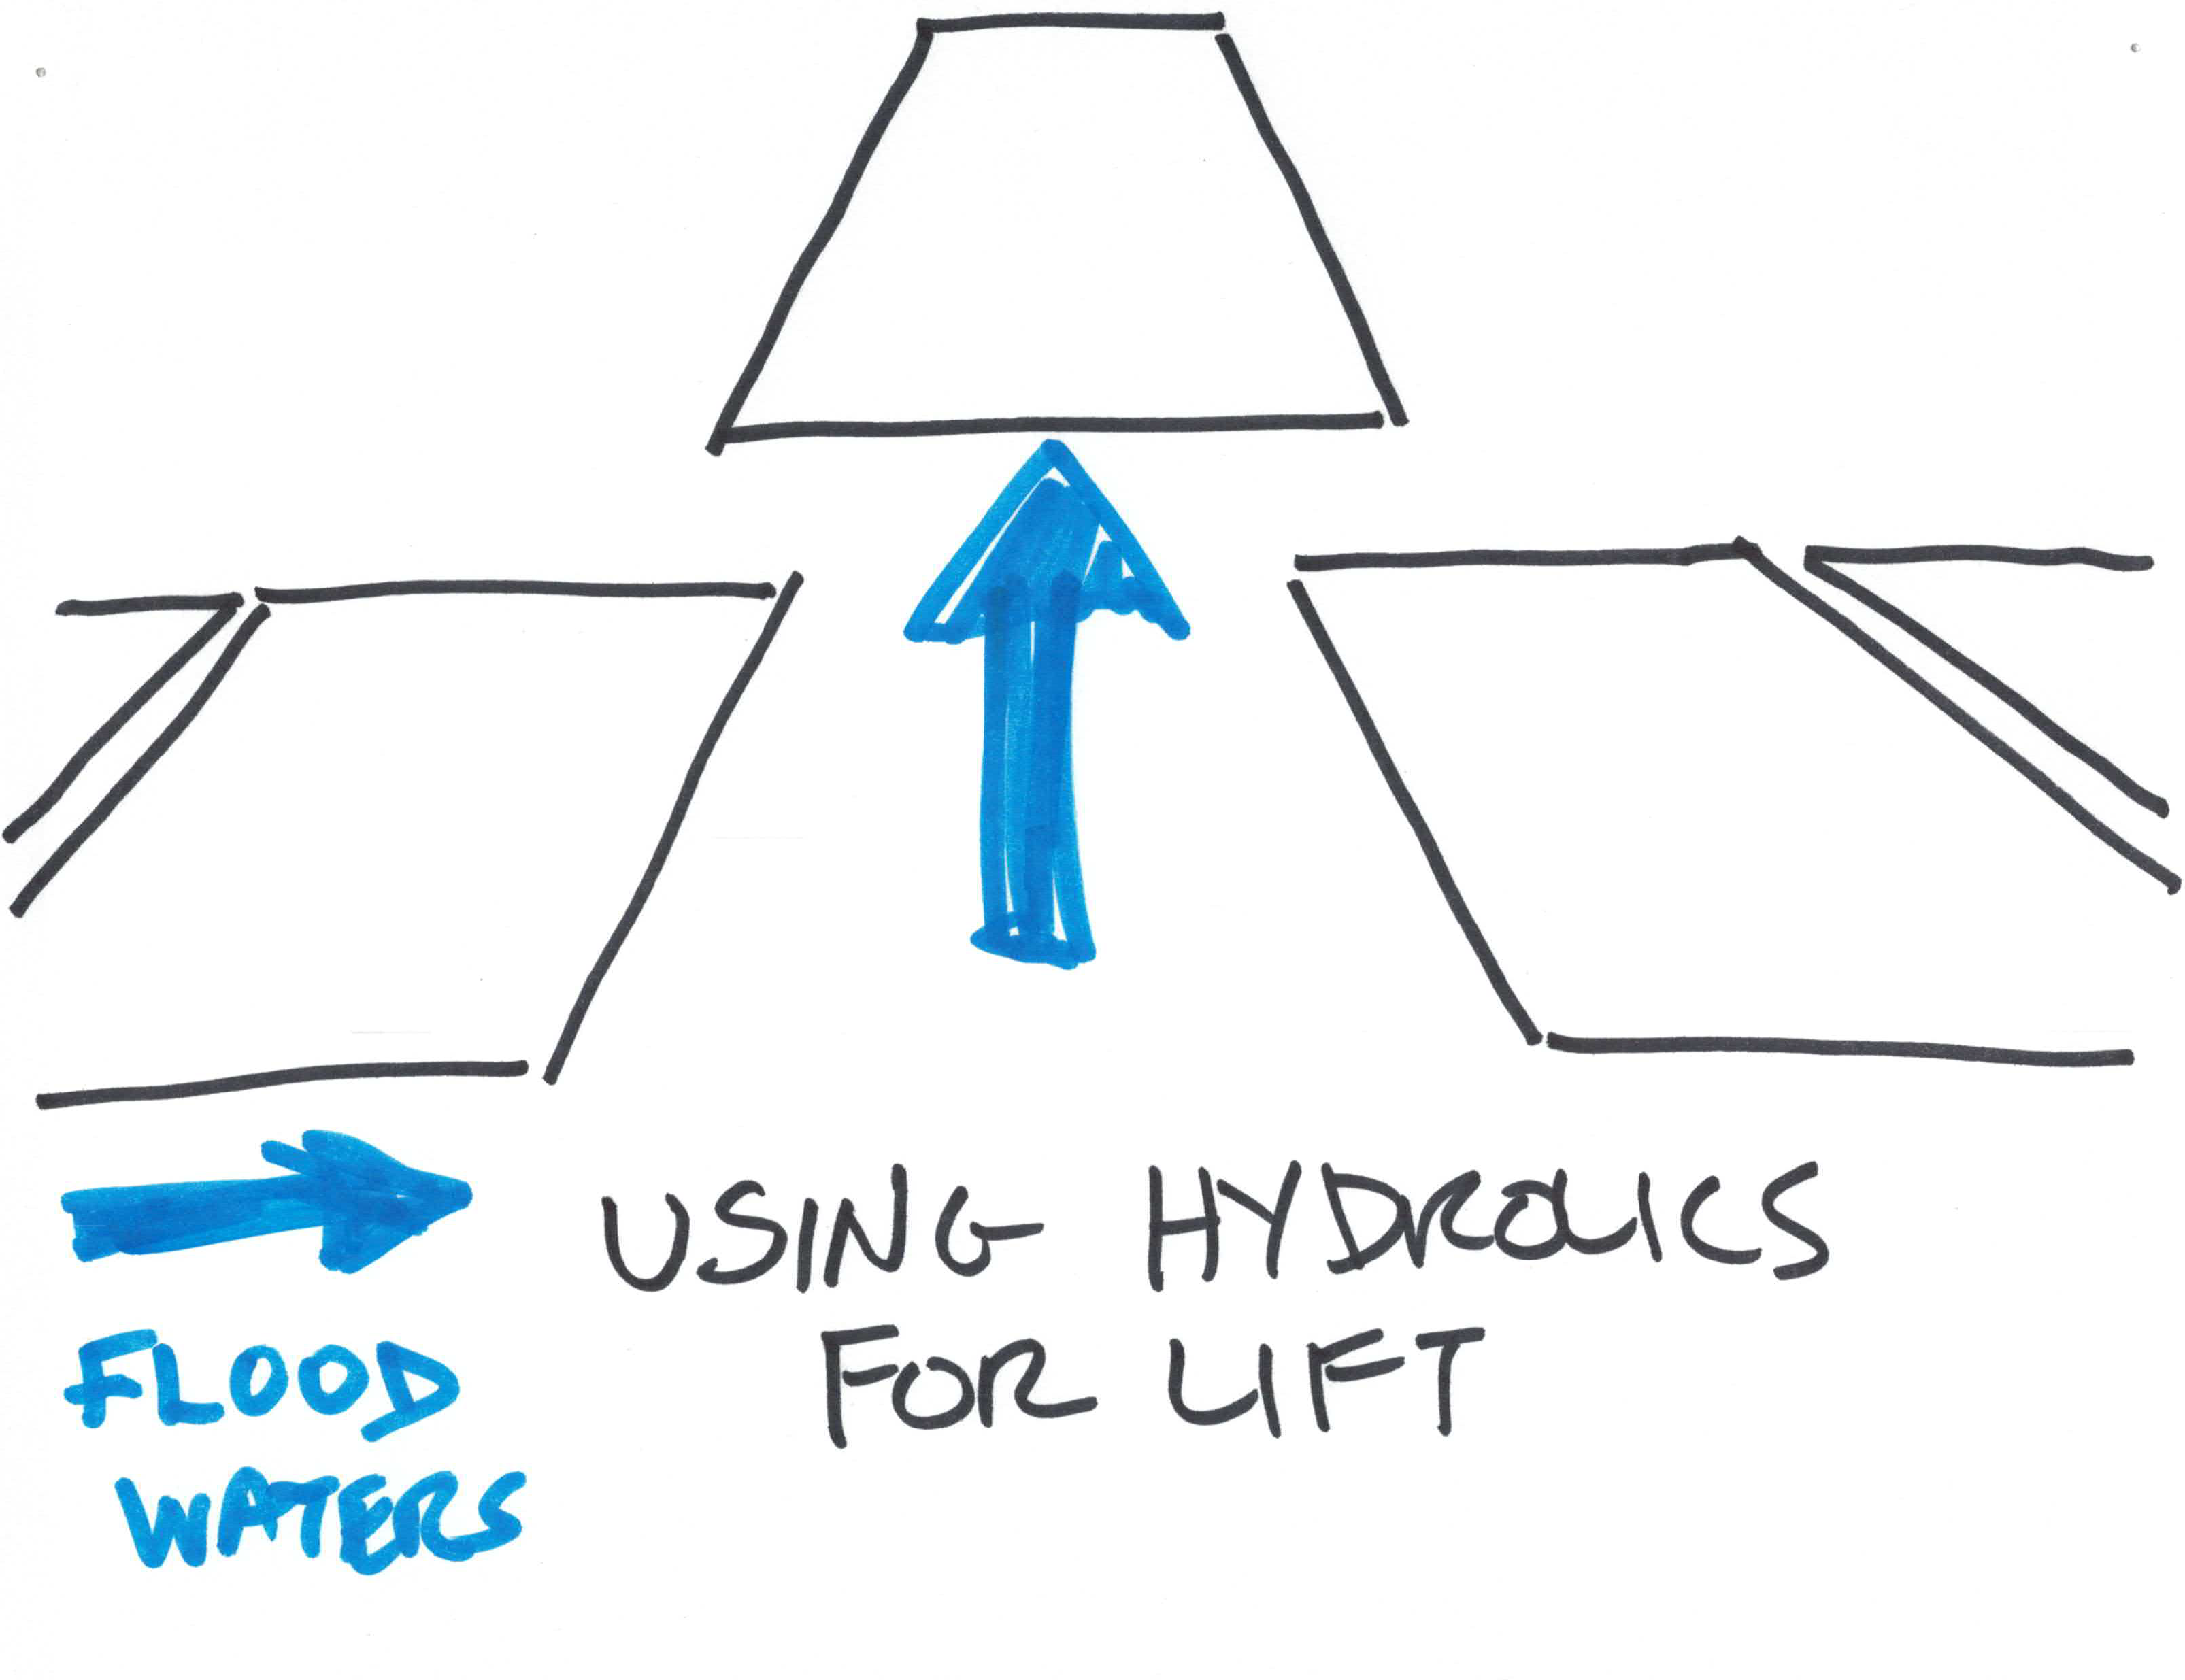 USING HYDROLICS
FOR LIFT
FLOOD
WATERS